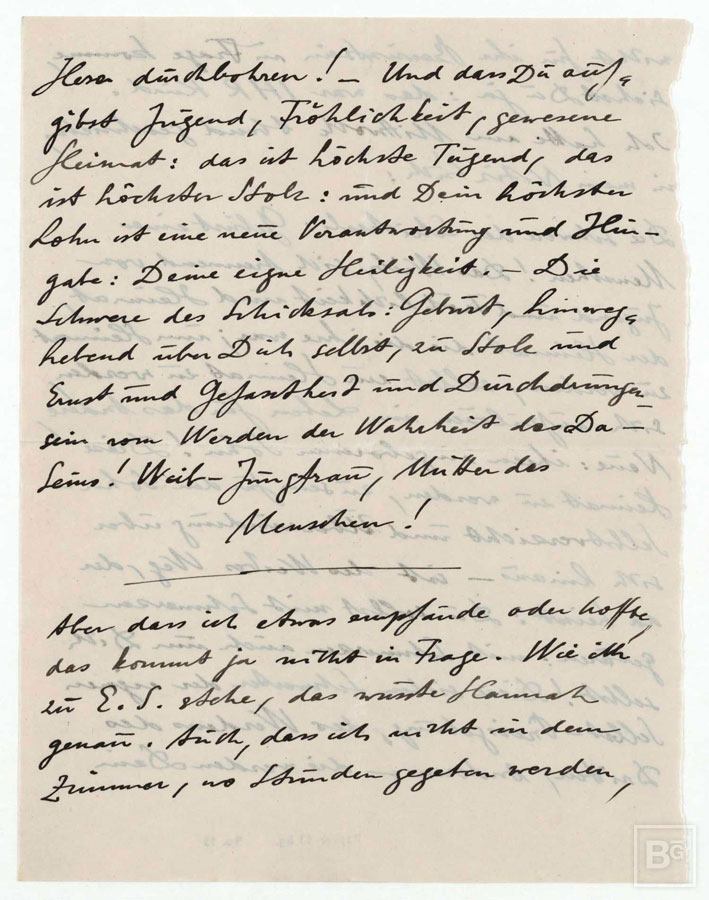 Herz durchbohren! – Und dass Du auf=
gibst Jugend, Fröhlichkeit, gewesene
Heimat: das ist höchste Tugend, das
ist höchster Stolz: und Dein höchster
Lohn ist eine neue Verantwortung und Hin–
gabe: Deine eigne Heiligkeit. – Die
Schwere des Schicksals: Geburt, hinweg=
hebend über Dich selbst, zu Stolz und
Ernst und Gefasstheit und Durchdrungen
sein vom Werden der Wahrheit des Da–
Seins! Weib – Jungfrau, Mutter des
Menschen!
Aber dass ich etwas empfände oder hoffte,
das kommt ja nicht in Frage. Wie ich
zu E. S. stehe, das wusste Hannah
genau. Auch, dass ich nicht in dem
Zimmer, wo Stunden gegeben werden,
BG